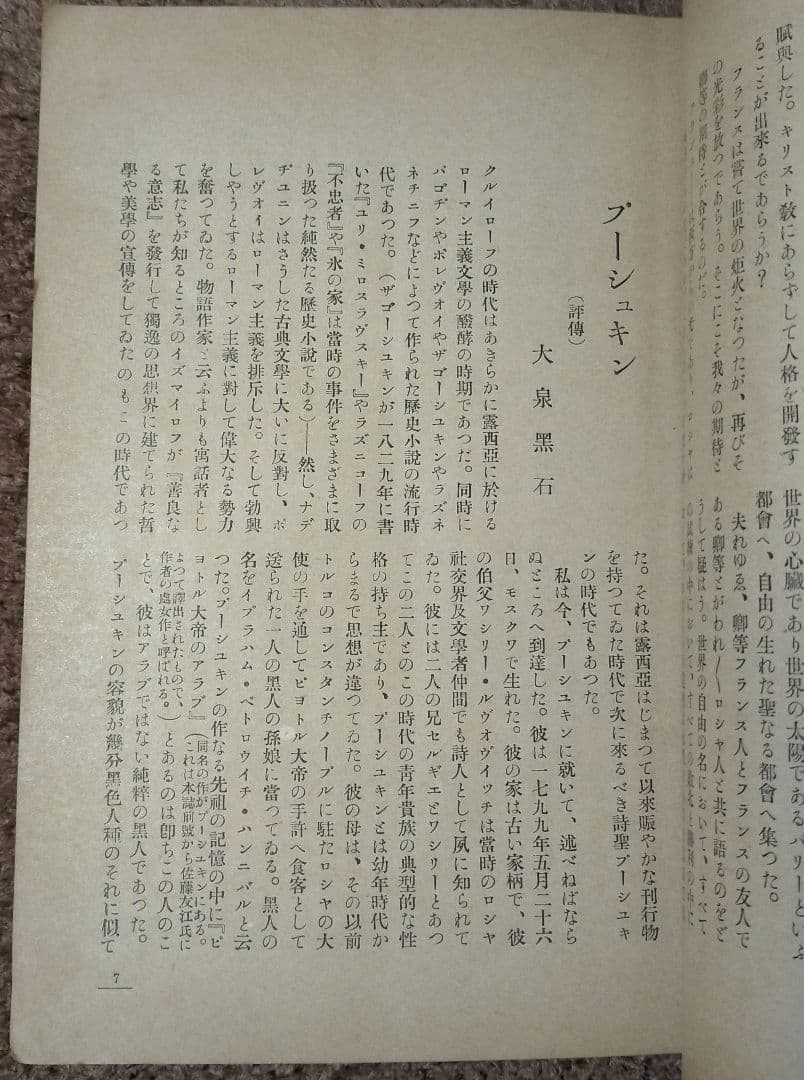 賦與した。キリスト教にあらずして人格を開發す
ることが出來るであらうか？
フランスは嘗て世界の炬火となつたが、再びそ
の光彩を放つであらう。そこにこそ我々の期待と
世界の心臓であり世界の太陽であるパリーといふ
都會へ、自由の生れた聖なる都會へ集つた。
夫れゆゑ、卿等フランス人とフランスの友人で
ある卿等とがわれ〳〵ロシヤ人と共に語るのをど
うして疑はう。世界の自由の名において、すべて、
プーシュキン
（評傳）
大泉黑石
クルイローフの時代はあきらかに露西亞に於ける
ローマン主義文學の醱酵の時期であつだ。同時に
パゴヂンやポレヴオイやザゴーシユキンやラズネ
ネチニフなどによつて作られた歷史小説の流行時
代であつた。（ザゴーシユキンが一八二九年に書
いた『ユリ・ミロスラヴスキー』やラズニコーフの
『不忠者』や『氷の家』は當時の事件をさまざまに取
り扱つた純然たる歷史小説である）——然し、ナデ
ヂユニンはさうした古典文學に大いに反對し、ポ
レヴオイはローマン主義を排斥した。そして勃興
しやうとするローマン主義に對して偉大なる勢力
を奮つてゐた。物語作家と云ふよりも寓話者とし
て私たちが知るところのイズマイロフが『善良な
る意志』を發行して獨逸の思想界に建てられた哲
學や美學の宣傳をしてゐたのもこの時代であつ
た。それは露西亞はじまつて以來賑やかな刊行物
を持つてゐた時代で次に來るべき詩聖プーシユキ
ンの時代でもあつた。
私は今、プーシユキンに就いて、述べねばなら
ぬところへ到達した。彼は一七九九年五月二十六
日、モスクワで生れた。彼の家は古い家柄で、彼
の伯父ワシリー・ルヴオヴイッチは當時のロシヤ
社交界及文學者仲間でも詩人として夙に知られて
ゐた。彼には二人の兄セルギエとワシリーとあつ
てこの二人とのこの時代の靑年貴族の典型的な性
格の持ち主であり、プーシユキンとは幼年時代か
らまるで思想が違つてゐた。彼の母は、その以前
トルコのコンスタンチノープルに駐たロシヤの大
使の手を通してピヨトル大帝の手許へ食客として
送られた一人の黑人の孫娘に當つてゐる。黑人の
名をイブラハム・ペトロウイチ・ハンニバルと云
つた。プーシユキンの作なる先祖の記憶の中に『ピ
ヨトル大帝のアラブ』（同名の作がプーシユキンにある。これは本誌前號から佐藤友江氏に
よつて譯出されたもので、作者の處女作と呼ばれる。）とあるのは卽ちこの人のこ
とで、彼はアラブではない純粹の黑人であつた。
プーシユキンの容貌が幾分黑色人種のそれに似て
7